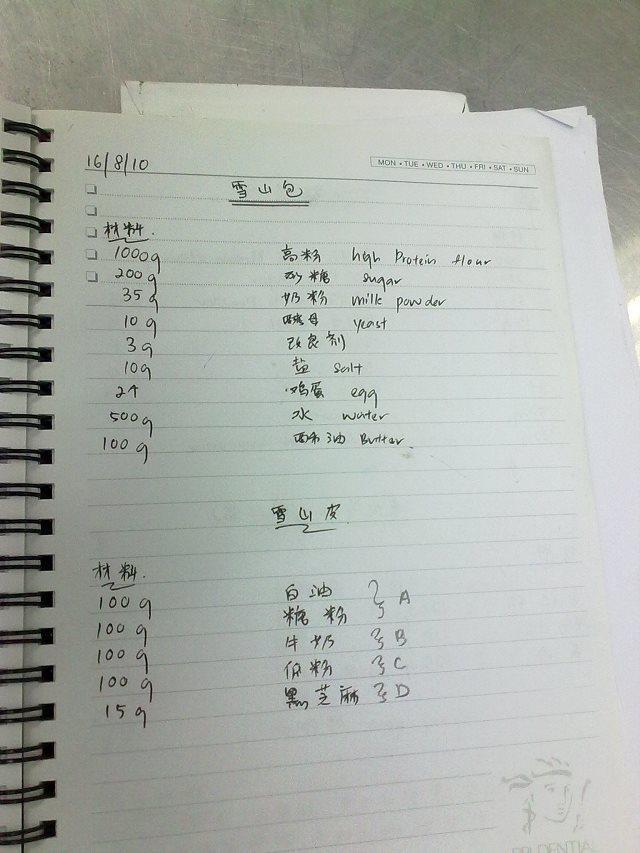 16/8/10
MON • TUE • WED • THU • FRI • SAT • SUN
雪山包
材料.
1000g 高粉 high Protein flour
200g 砂糖 sugar
35g 奶粉 milk powder
10g 酵母 yeast
3g 改良剂
10g 盐 salt
24 鸡蛋 egg
500g 水 water
100g 酥油 Butter.
雪山皮
材料.
100g 白油 A
100g 糖粉
100g 牛奶 B
100g 低粉 C
15g 黑芝麻 D
PRUDENTIAL